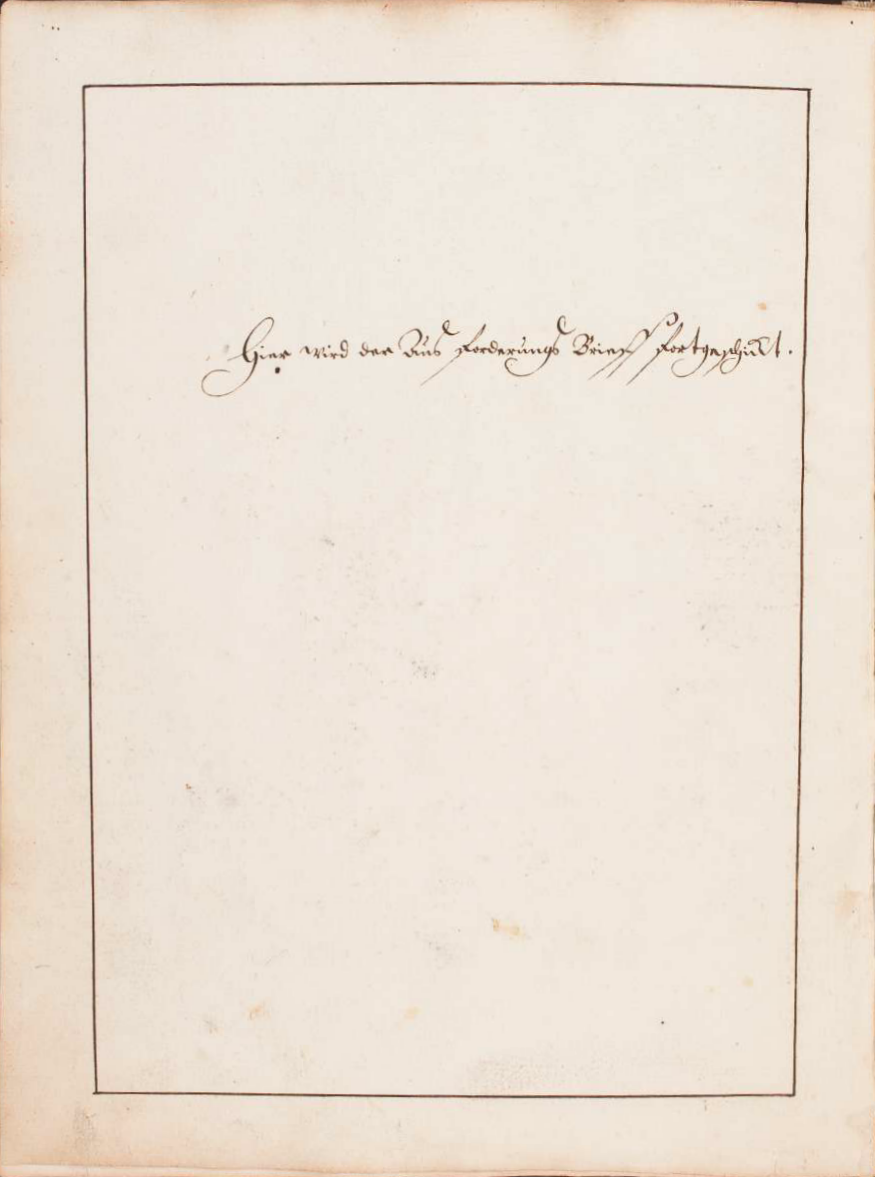 Hier wird der Aus forderungs Brieff fortgeschickt.